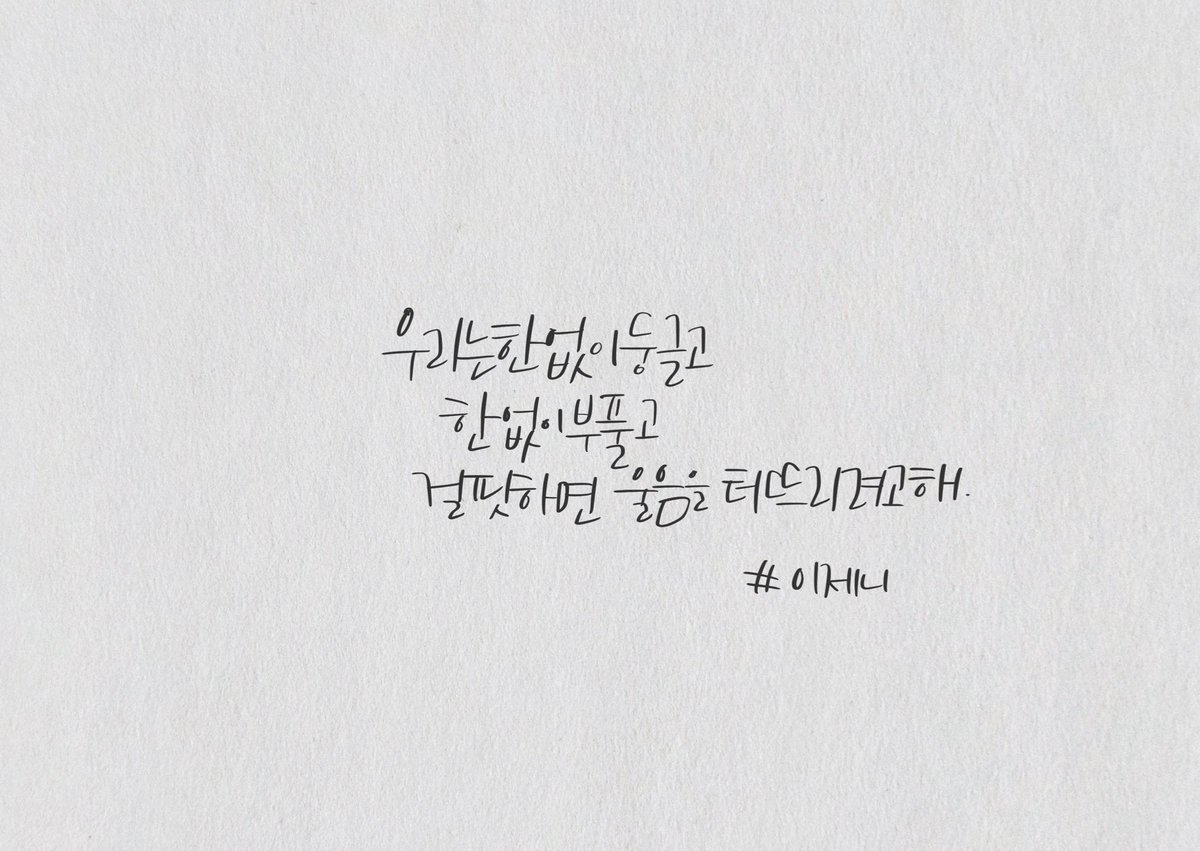 우리는 한없이 둥글고
한없이 부풀고
걸핏하면 울음을 터뜨리려고 해.
#이제니